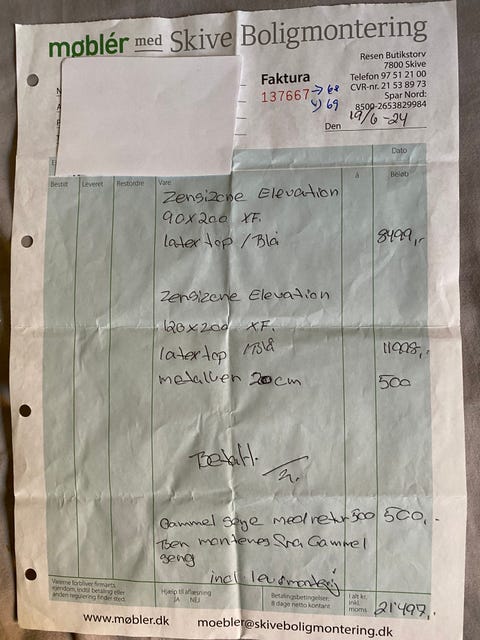 møblér med Skive Boligmontering
Resen Butikstorv
7800 Skive
Telefon 97 51 21 00
CVR-nr. 21 53 89 73
Spar Nord:
8500-2653829984
Faktura
137667 → 68
→ 69
Den 19/6-24
Dato
Bestilt Leveret Restordre Vare á Beløb
Zensizone Elevation
90x200 XF.
latex top / Blå 8499,-
Zensizone Elevation
120x200 XF.
latex top / Blå 11998,-
metalben 20cm 500
Betalt.
Gammel senge med retur 300 500,-
Ben monteres fra Gammel
seng
incl. lev & montering
Varerne forbliver firmaets
ejendom, indtil betaling eller
anden regulering finder sted.
Hjælp til aflæsning
JA NEJ
Betalingsbetingelser:
8 dage netto kontant
I alt kr.
inkl.
moms 21'497,-
www.møbler.dk moebler@skiveboligmontering.dk